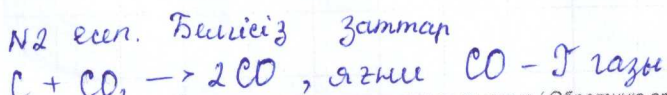 №2 есеп. Белгісіз заттар
C + CO₂ → 2CO, яғни CO – Y газы